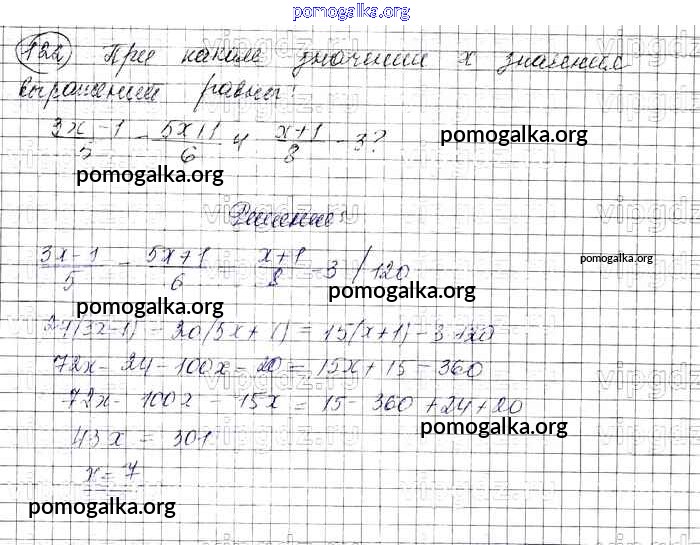 pomogalka.org
122) При каком значении x значения
выражений равны:
(3x-1)/5 - (5x+1)/6 и (x+1)/8 - 3?
pomogalka.org
pomogalka.org
Решение:
(3x-1)/5 - (5x+1)/6 = (x+1)/8 - 3 / 120
pomogalka.org
pomogalka.org
pomogalka.org
24(3x-1) - 20(5x+1) = 15(x+1) - 3·120
72x - 24 - 100x - 20 = 15x + 15 - 360
72x - 100x - 15x = 15 - 360 + 24 + 20
pomogalka.org
43x = 301
x = 7
pomogalka.org